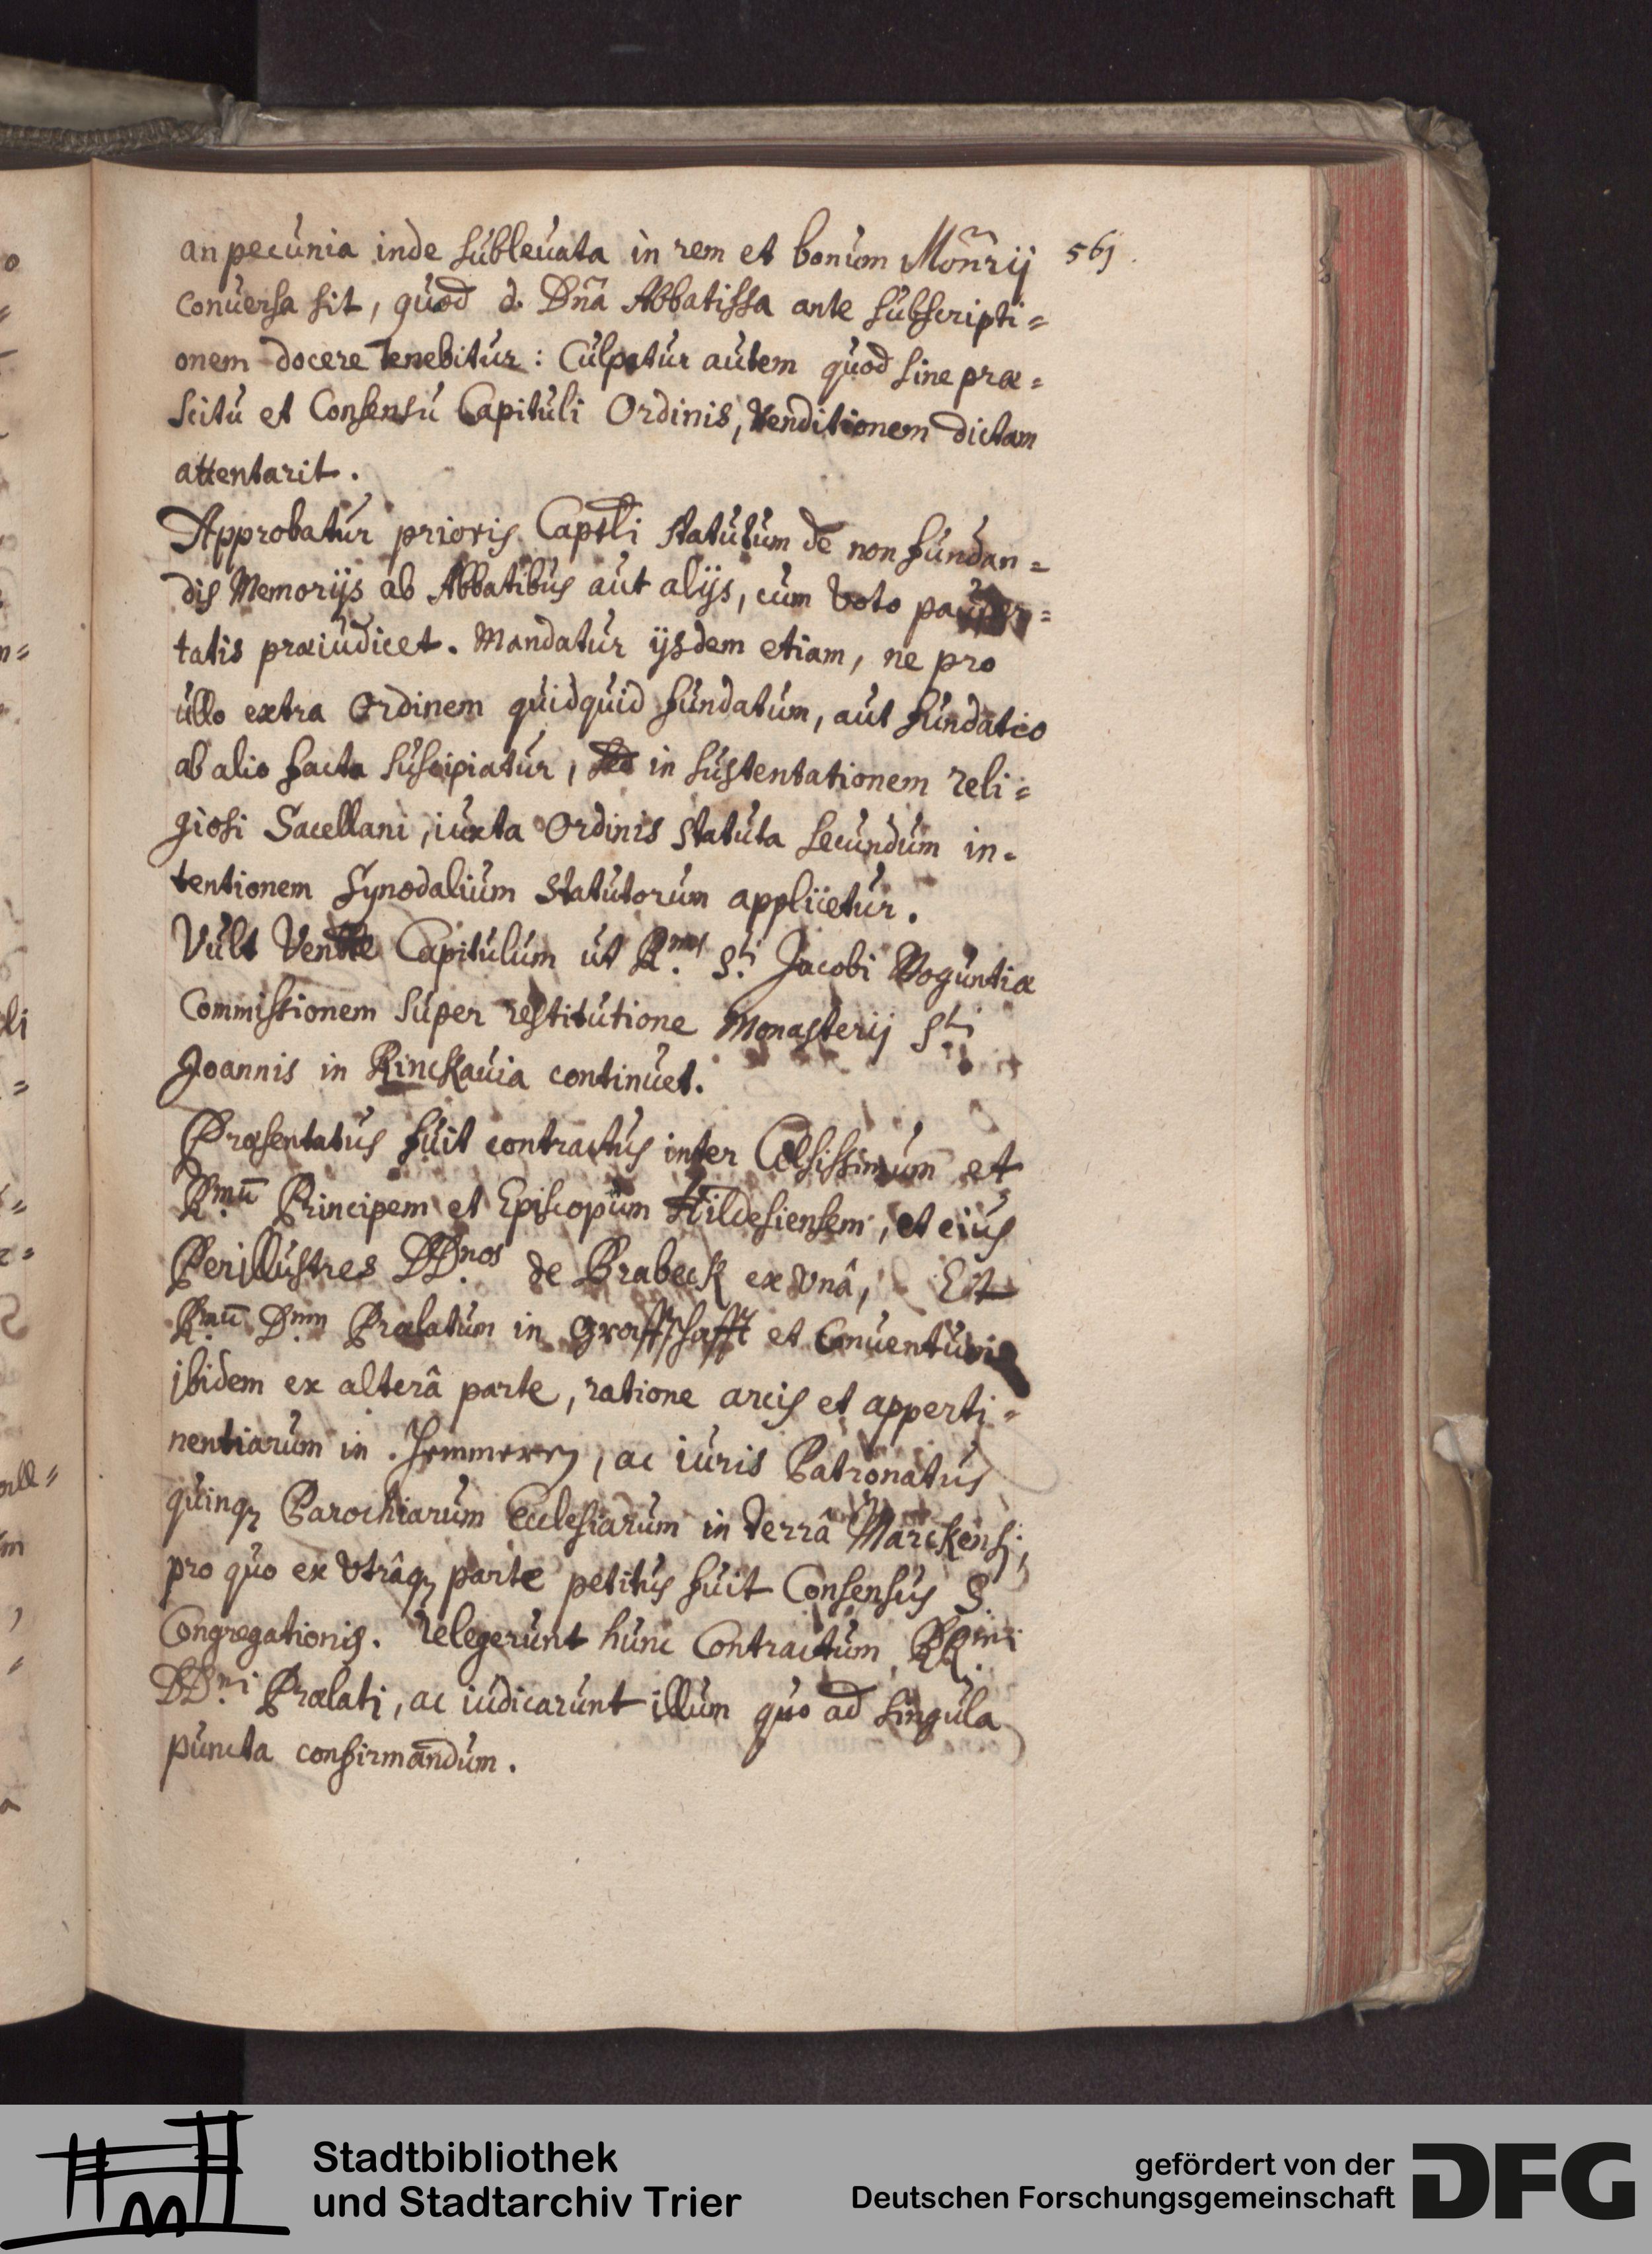 an pecunia inde subleuata in rem et bonum Monrij 561.
conuersa sit, quod d. Dna Abbatissa ante subscripti=
onem docere tenebitur: Culpatur autem quod sine præ=
scitu et Consensu Capituli Ordinis, Venditionem dictam
attentarit.
Approbatur prioris Capitli statutum de non fundan=
dis Memorijs ab Abbatibus aut alijs, cum voto pauper=
tatis præiudicet. Mandatur ijsdem etiam, ne pro
ullo extra Ordinem quidquid fundatum, aut fundatio
ab alio facta suscipiatur, sed in sustentationem reli=
giosi Sacellani, iuxta Ordinis statuta secundum in=
tentionem Synodalium statutorum applicetur.
Vult Ven Capitulum ut R.mus S.ti Jacobi Moguntiæ
Commissionem super restitutione Monasterij S.ti
Joannis in Rinckauia continuet.
Præsentatus fuit contractus inter Celsissimum et
R.mu Principem et Episcopum Hildesiensem, et eius
Perillustres DD.nos de Brabeck ex vnâ, Et
R.mu D.nm Prælatum in Graffschafft et Conuentum
ibidem ex alterâ parte, ratione arcis et apperti=
nentiarum in , ac iuris Patronatus
quinq Parochiarum Ecclesiarum in terrâ Marckensi,
pro quo ex vtrâq parte petitus fuit Consensus S.
Congregationis. relegerunt hunc Contractum RR.mi
DD.ni Prælati, ac iudicarunt illum quo ad singula
puncta confirmandum.
Stadtbibliothek
und Stadtarchiv Trier
gefördert von der
Deutschen Forschungsgemeinschaft
DFG